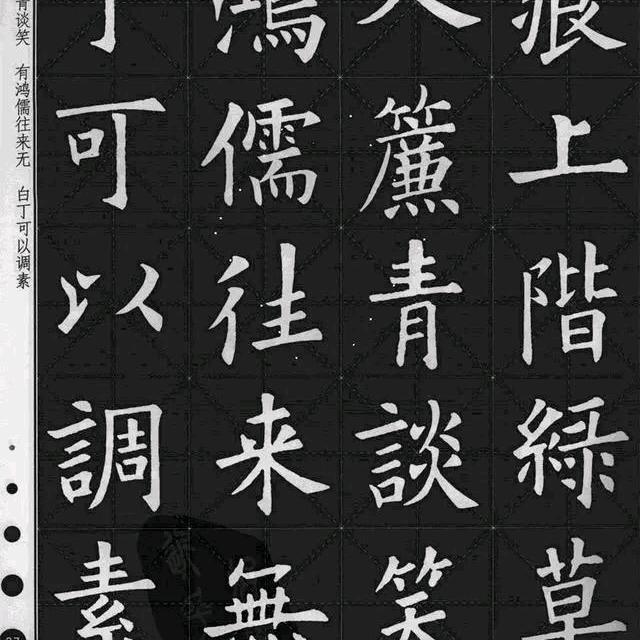 痕上階綠草
入簾青談笑
鴻儒往来無
丁可以調素
青谈笑 有鸿儒往来无 白丁可以调素